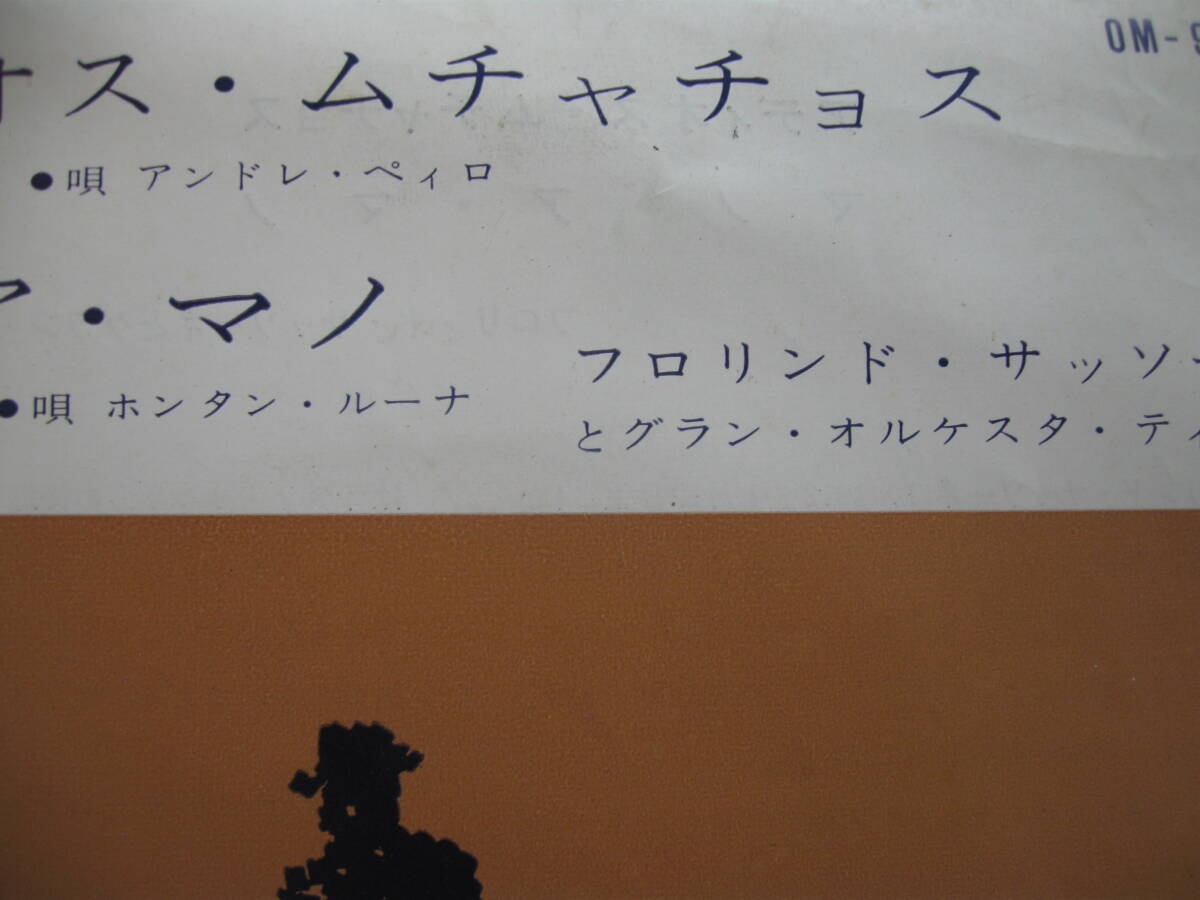 OM-9
オス・ムチャチョス
●唄 アンドレ・ペィロ
ア・マノ
●唄 ホンタン・ルーナ
フロリンド・サッソー
とグラン・オルケスタ・ティ